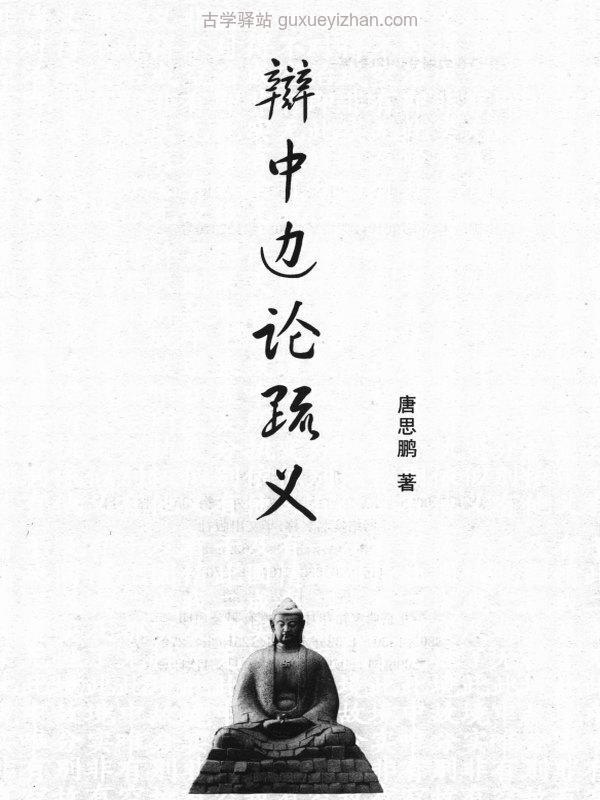 古学驿站 guxueyizhan.com
辩中边论疏义
唐思鹏 著